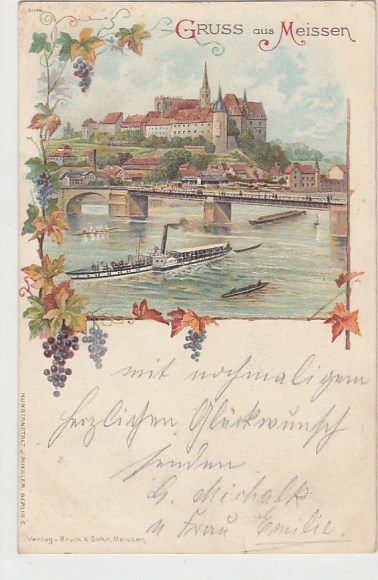 GRUSS aus Meissen
mit nochmaligem
herzlichen Glückwunsch
senden
G. Michalk
u Frau Emilie.
KUNSTANSTALT J. MIESLER, BERLIN S.
Verlag v. Bruck & Sohn, Meissen